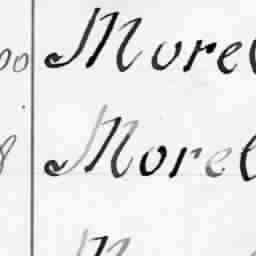 00 Morel
8 Morel